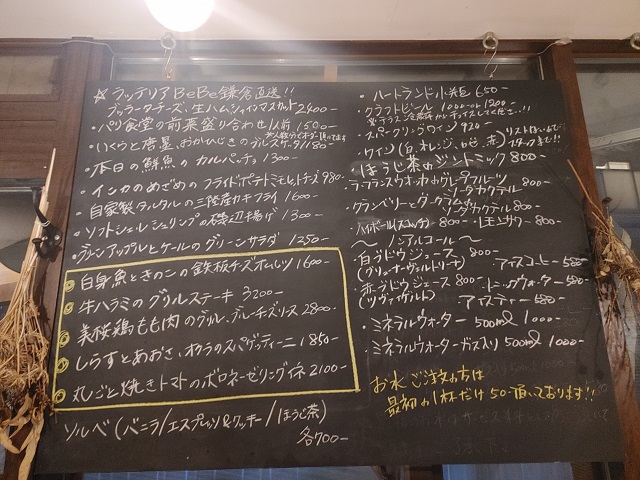 ☆ ラッテリアBeBe鎌倉直送!!
ブッラータチーズ、生ハム、シャインマスカット 2400-
・パリ食堂の前菜盛り合わせ 1人前 1500-
・いくらと
ブルスケッタ 180-
・本日の鮮魚の カルパッチョ 1300-
・インカのめざめの フライドポテト
980-
・自家製タルタルの三陸産カキフライ 1600-
・ソフトシェルシュリンプの磯辺揚げ 1300-
・グリーンアップルとケールのグリーンサラダ 1250-
◎ 白身魚ときのこの鉄板チーズオムレツ 1600-
◎ 牛ハラミのグリルステーキ 3200-
◎ 美桜鶏もも肉のグリル、ブルーチーズソース 2800-
◎ しらすとあおさ、オカラのスパゲッティーニ 1850-
◎ 丸ごと焼きトマトのボロネーゼリングイネ 2100-
ソルベ(バニラ/エスプレッソ&クッキー/ほうじ茶)
各700-
・ハートランド小瓶 650-
・クラフトビール 1000- or 1200-
・スパークリングワイン 920-
・ワイン(白、オレンジ、ロゼ、赤)
・ほうじ茶のジントニック 800-
・ラ・フランスウォッカのグレープフルーツ
ソーダカクテル 800-
・クランベリーとダークラムの
ソーダカクテル 800-
・ハイボール(スコッチ) 800-
サワー 800-
〜 ノンアルコール 〜
・白ブドウジュース 800-
(グリューナーヴェルトリーナ)
・アイスコーヒー 500-
・赤ブドウジュース 800-
(ツヴァイゲルト)
・トニックウォーター 500-
・アイスティー 500-
・ミネラルウォーター 500ml 1000-
・ミネラルウォーターガス入り 500ml 1000-
お水ご注文の方は
最初の1杯だけ50-頂いております!!